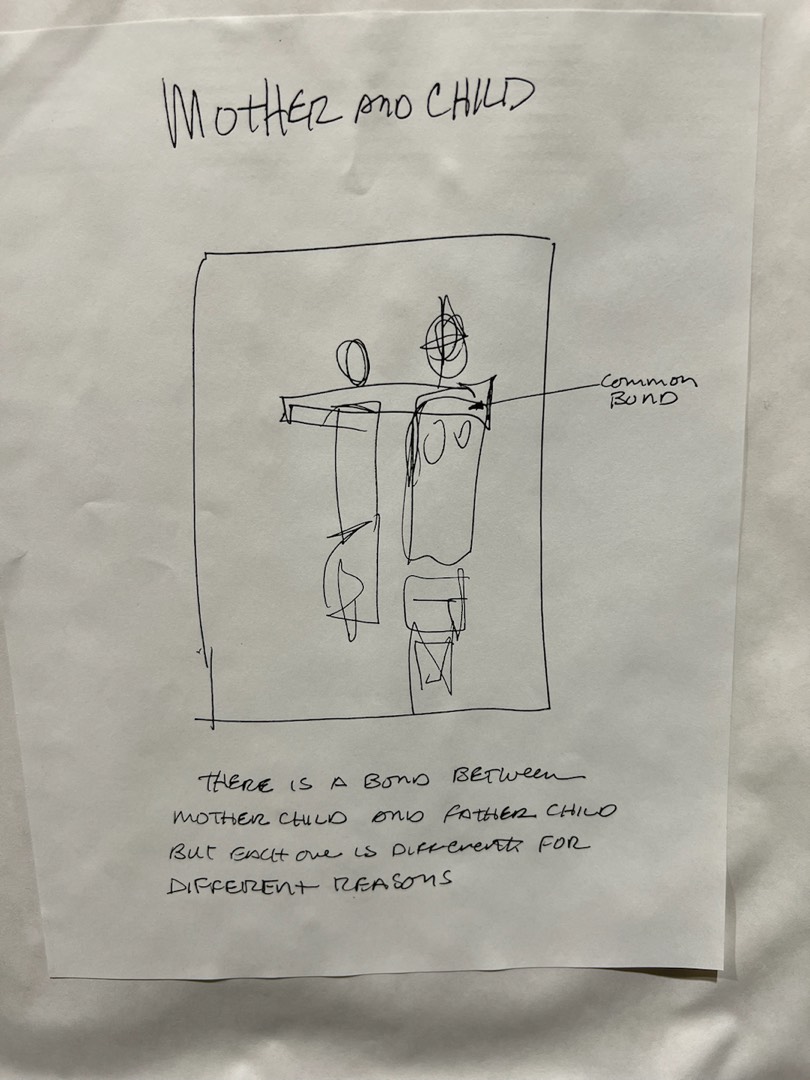 MOTHER AND CHILD
COMMON
BOND
THERE IS A BOND BETWEEN
MOTHER CHILD AND FATHER CHILD
BUT EACH ONE IS DIFFERENT FOR
DIFFERENT REASONS